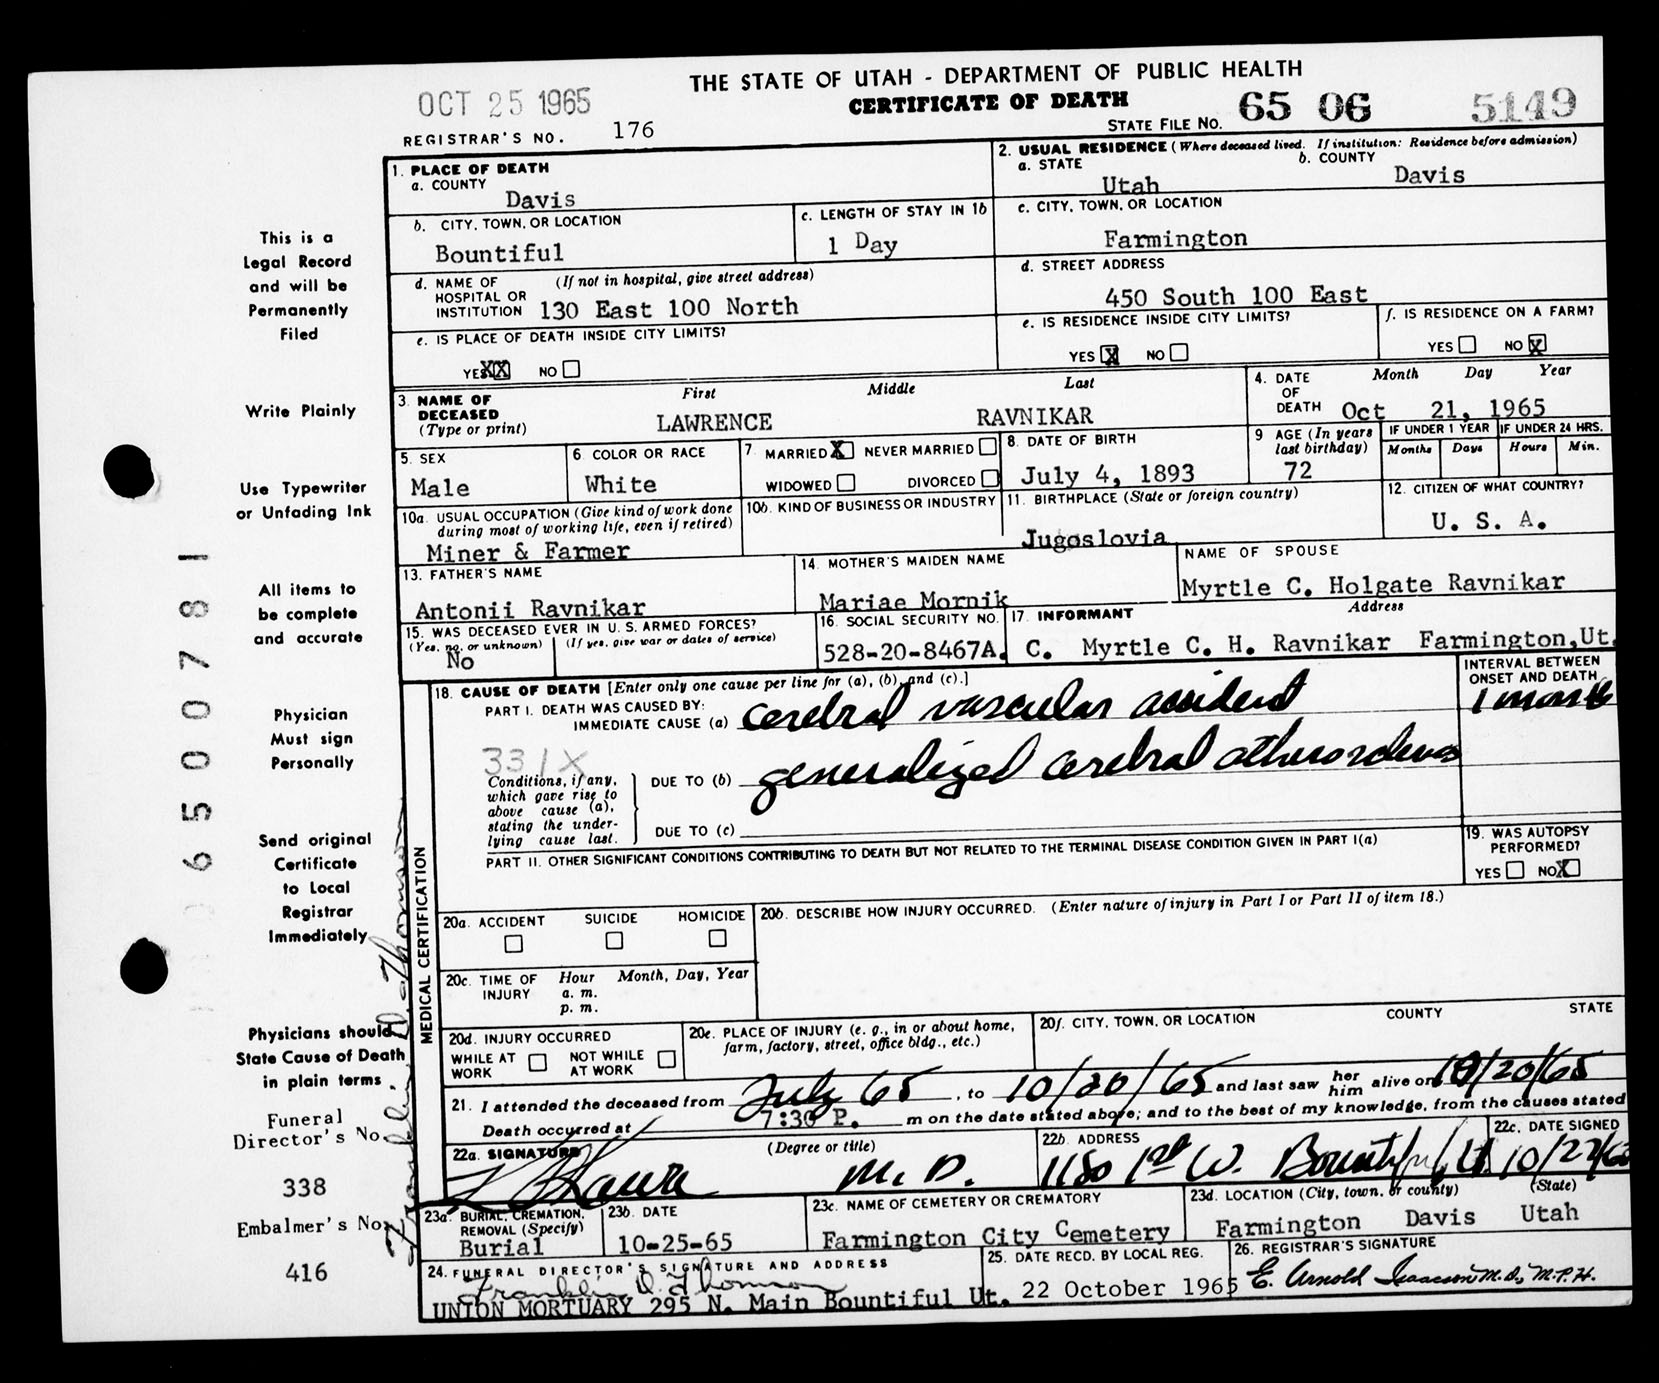 THE STATE OF UTAH - DEPARTMENT OF PUBLIC HEALTH
OCT 25 1965
CERTIFICATE OF DEATH
STATE FILE NO. 65 06 5149
REGISTRAR'S NO. 176
1. PLACE OF DEATH
a. COUNTY
Davis
2. USUAL RESIDENCE (Where deceased lived. If institution: Residence before admission)
a. STATE
Utah
b. COUNTY
Davis
b. CITY, TOWN, OR LOCATION
Bountiful
c. LENGTH OF STAY IN 1b
1 Day
c. CITY, TOWN, OR LOCATION
Farmington
d. NAME OF HOSPITAL OR INSTITUTION
(If not in hospital, give street address)
130 East 100 North
d. STREET ADDRESS
450 South 100 East
e. IS PLACE OF DEATH INSIDE CITY LIMITS?
YES XX NO
e. IS RESIDENCE INSIDE CITY LIMITS?
YES X NO
f. IS RESIDENCE ON A FARM?
YES NO X
3. NAME OF DECEASED
(Type or print)
First Middle Last
LAWRENCE RAVNIKAR
4. DATE OF DEATH
Month Day Year
Oct 21, 1965
5. SEX
Male
6. COLOR OR RACE
White
7. MARRIED X NEVER MARRIED
WIDOWED DIVORCED
8. DATE OF BIRTH
July 4, 1893
9 AGE (In years last birthday)
72
IF UNDER 1 YEAR
Months Days
IF UNDER 24 HRS.
Hours Min.
10a. USUAL OCCUPATION (Give kind of work done during most of working life, even if retired)
Miner & Farmer
10b. KIND OF BUSINESS OR INDUSTRY
11. BIRTHPLACE (State or foreign country)
Jugoslovia
12. CITIZEN OF WHAT COUNTRY?
U. S. A.
13. FATHER'S NAME
Antonii Ravnikar
14. MOTHER'S MAIDEN NAME
Mariae Mornik
NAME OF SPOUSE
Myrtle C. Holgate Ravnikar
15. WAS DECEASED EVER IN U. S. ARMED FORCES?
(Yes, no, or unknown) (If yes, give war or dates of service)
No
16. SOCIAL SECURITY NO.
528-20-8467A.
17. INFORMANT Address
C. Myrtle C. H. Ravnikar Farmington,Ut.
18. CAUSE OF DEATH [Enter only one cause per line for (a), (b), and (c).]
INTERVAL BETWEEN ONSET AND DEATH
PART I. DEATH WAS CAUSED BY:
IMMEDIATE CAUSE (a) cerebral vascular accident
1 month
331X
Conditions, if any, which gave rise to above cause (a), stating the underlying cause last.
DUE TO (b) generalized cerebral atherosclerosis
DUE TO (c)
PART II. OTHER SIGNIFICANT CONDITIONS CONTRIBUTING TO DEATH BUT NOT RELATED TO THE TERMINAL DISEASE CONDITION GIVEN IN PART I(a)
19. WAS AUTOPSY PERFORMED?
YES NO X
MEDICAL CERTIFICATION
20a. ACCIDENT SUICIDE HOMICIDE
20b. DESCRIBE HOW INJURY OCCURRED. (Enter nature of injury in Part I or Part II of item 18.)
20c. TIME OF INJURY
Hour Month, Day, Year
a. m.
p. m.
20d. INJURY OCCURRED
WHILE AT WORK
NOT WHILE AT WORK
20e. PLACE OF INJURY (e. g., in or about home, farm, factory, street, office bldg., etc.)
20f. CITY, TOWN, OR LOCATION COUNTY STATE
21. I attended the deceased from July 65, to 10/20/65 and last saw her him alive on 10/20/65
Death occurred at 7:30 P. m on the date stated above; and to the best of my knowledge, from the causes stated
22a. SIGNATURE (Degree or title)
M. D.
22b. ADDRESS
1180 1st W. Bountiful, Ut.
22c. DATE SIGNED
10/22/65
23a. BURIAL, CREMATION, REMOVAL (Specify)
Burial
23b. DATE
10-25-65
23c. NAME OF CEMETERY OR CREMATORY
Farmington City Cemetery
23d. LOCATION (City, town, or county) (State)
Farmington Davis Utah
24. FUNERAL DIRECTOR'S SIGNATURE AND ADDRESS
Franklin D. Thomson
UNION MORTUARY 295 N. Main Bountiful Ut.
25. DATE RECD. BY LOCAL REG.
22 October 1965
26. REGISTRAR'S SIGNATURE
E. Arnold Isaacson M.D., M.P.H.
This is a
Legal Record
and will be
Permanently
Filed
Write Plainly
Use Typewriter
or Unfading Ink
All items to
be complete
and accurate
Physician
Must sign
Personally
Send original
Certificate
to Local
Registrar
Immediately
Physicians should
State Cause of Death
in plain terms.
Funeral
Director's No.
338
Embalmer's No.
416
Franklin D. Thomson
6500781